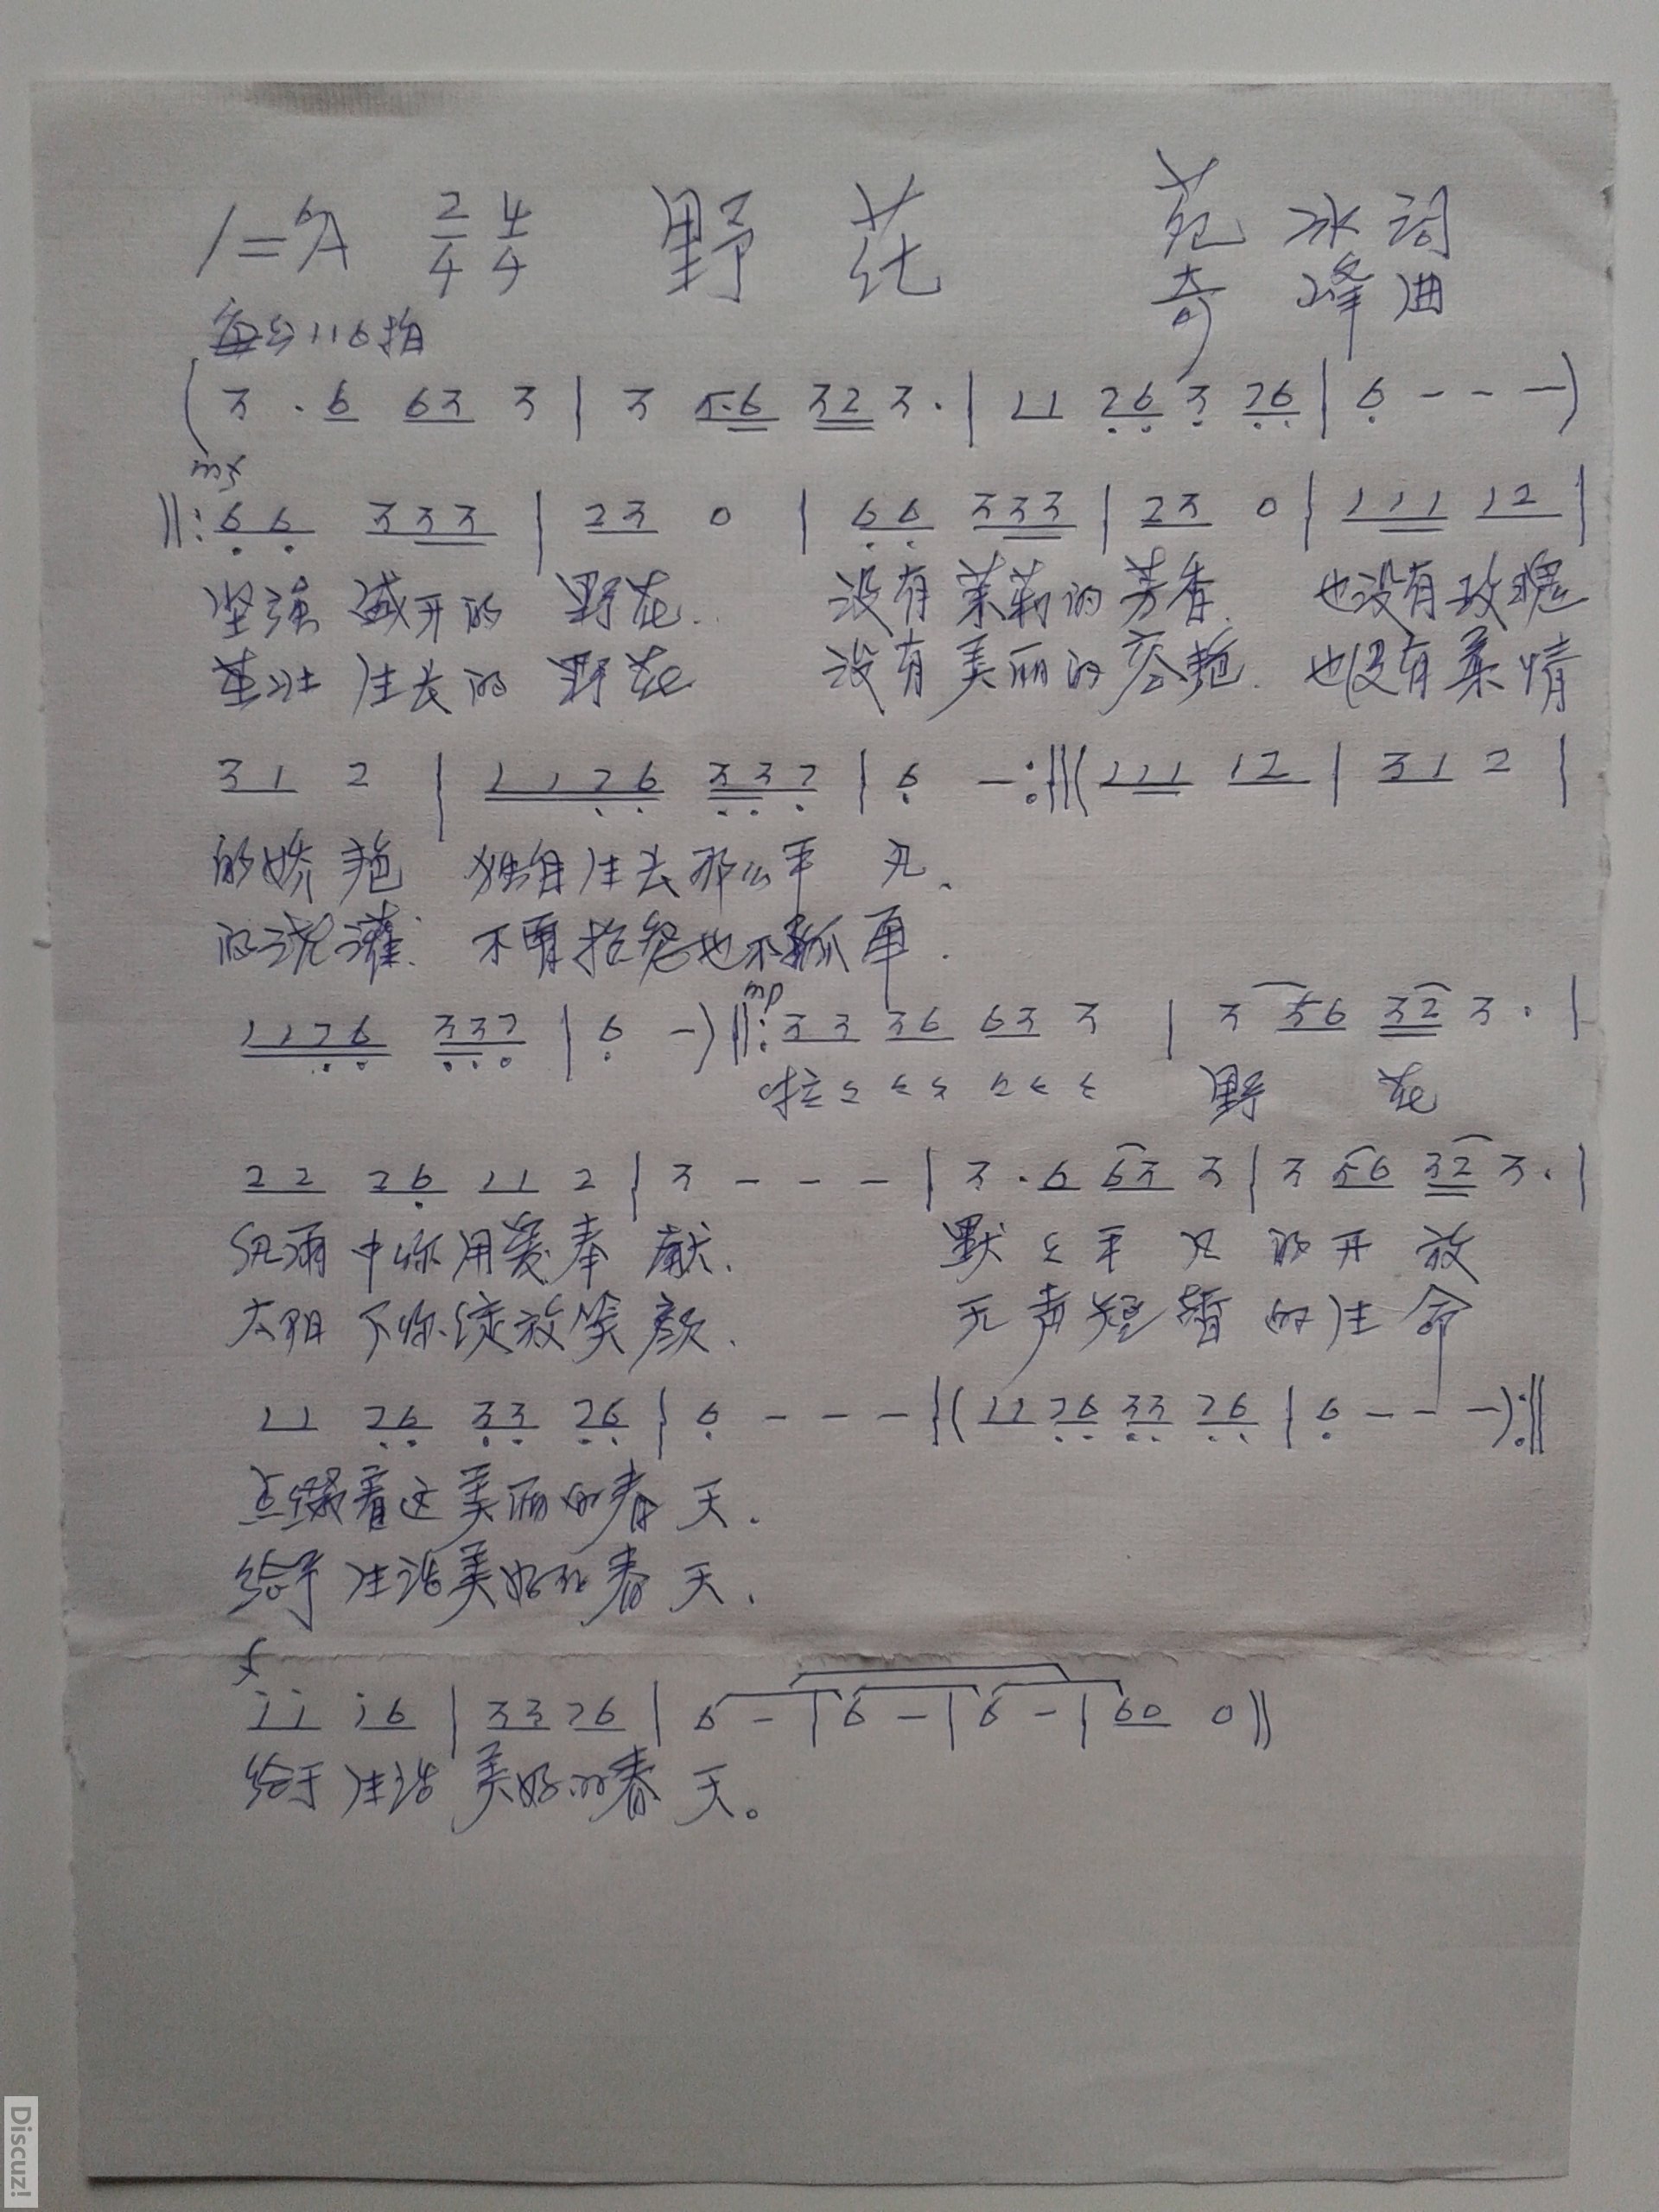 1=♭A 2/4 4/4 野花 苑冰词
奇峰曲
每分116拍
( 3 · 6 63 3 | 3 5·6 32 3· | 11 26 3 26 | 6 - - - )
mf
‖: 66 333 | 23 0 | 66 333 | 23 0 | 111 12 |
坚强 盛开的 野花. 没有茉莉的芳香. 也没有玫瑰
茁壮 生长的 野花 没有美丽的容艳. 也没有柔情
31 2 | 1176 337 | 6 - :‖( 111 12 | 31 2 |
的娇艳 独自生长那么平凡.
的浇灌. 不要抱怨也不孤单.
mp
1176 337 | 6 - ) ‖: 33 36 63 3 | 3 56 32 3· |
啦 野 花
22 26 11 2 | 3 - - - | 3·6 63 3 | 3 56 32 3· |
风雨中你用爱奉献. 默默平凡的开放
太阳下你绽放笑颜. 无声短暂的生命
11 26 33 26 | 6 - - - |( 11 26 33 26 | 6 - - - ):‖
点缀着这美丽的春天.
给予生活美好的春天.
f
ii i6 | 33 26 | 6 - | 6 - | 6 - | 60 0 ‖
给予生活美好的春天。
Discuz!